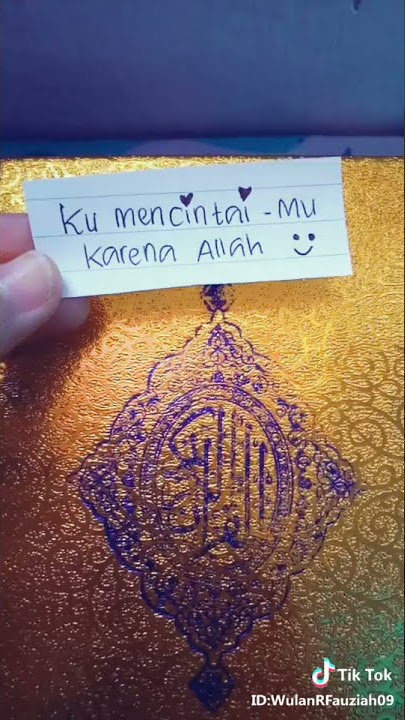 Ku mencintai -Mu
Karena Allah
Tik Tok
ID:WulanRFauziah09